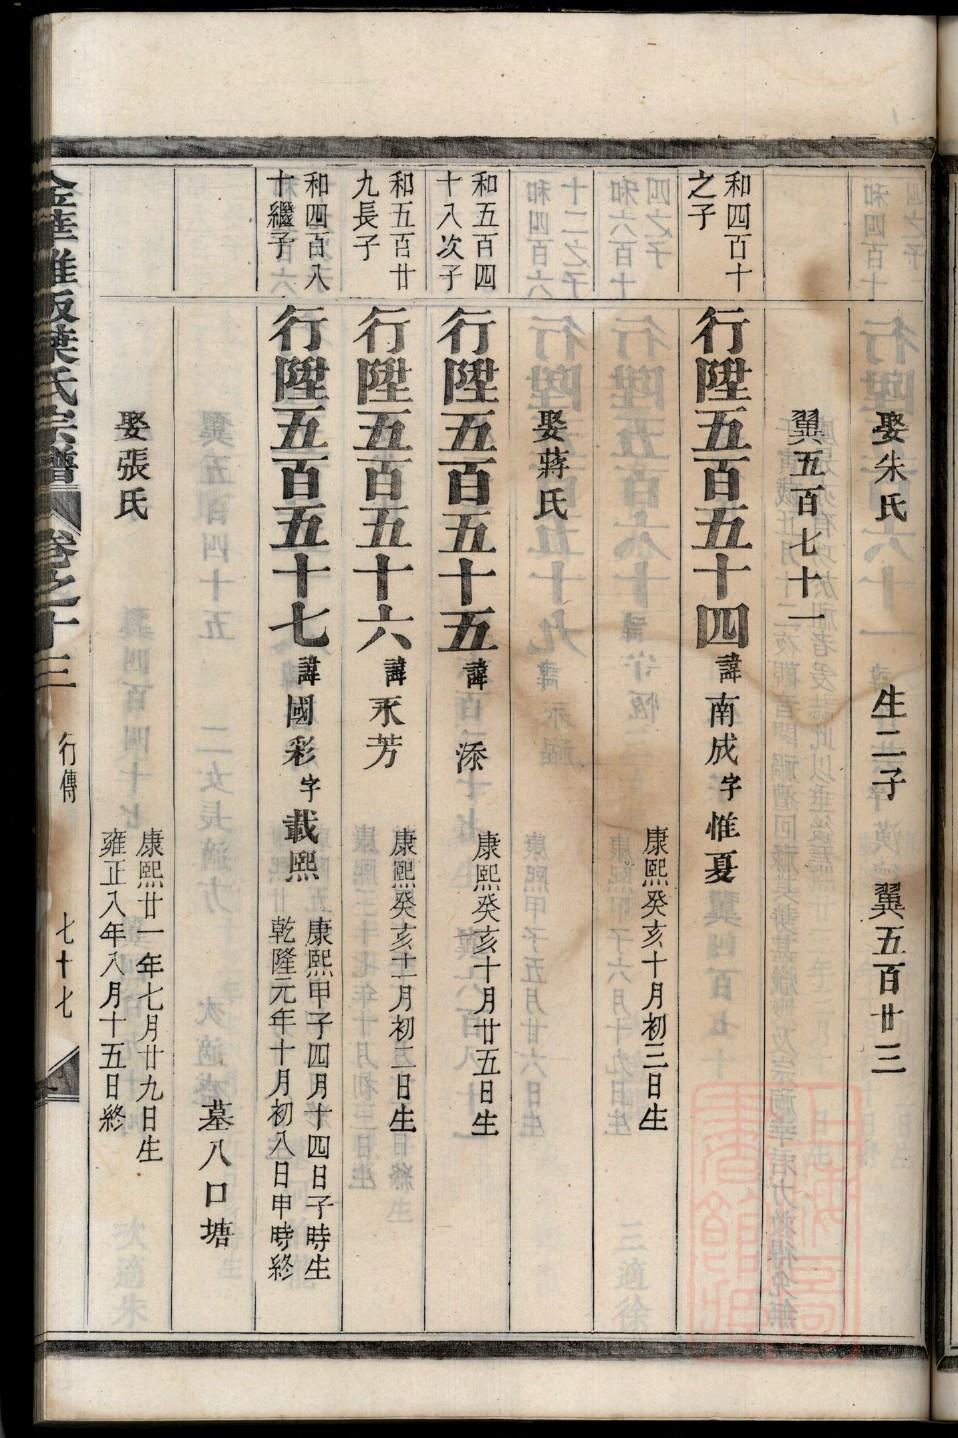 娶朱氏 生二子 翼五百廿三
翼五百七十一
和四百十
之子
行陞五百五十四 諱南成 字惟夏 康熙癸亥十月初三日生
娶蔣氏
和五百四
十八次子
行陞五百五十五 諱添 康熙癸亥十月廿五日生
和五百廿
九長子
行陞五百五十六 諱永芳 康熙癸亥十一月初五日生
和四百八
十繼子
行陞五百五十七 諱國彩 字載熙
康熙甲子四月十四日子時生
乾隆元年十月初八日申時終
墓八口塘
娶張氏
康熙廿一年七月廿九日生
雍正八年八月十五日終
金華雅畈葉氏宗譜 卷之十三 行傳 七十七